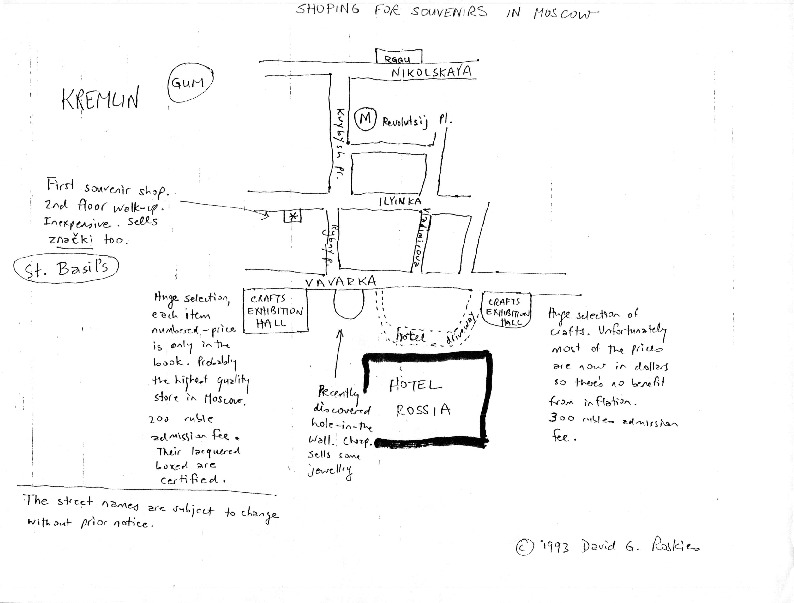 SHOPING FOR SOUVENIRS IN MOSCOW
RGGU
NIKOLSKAYA
GUM
KREMLIN
M
Revolutsij Pl.
First souvenir shop.
2nd floor walk-up.
Inexpensive. Sells
znački too.
ILYINKA
St. Basil's
VAVARKA
Huge selection,
each item
numbered - price
is only in the
book. Probably
the highest quality
store in Moscow.
200 ruble
admission fee.
Their lacquered
boxed are
certified.
CRAFTS
EXHIBITION
HALL
Recently
discovered
hole-in-the
wall. Cheap.
sells some
jewellry
hotel driveway
HOTEL
ROSSIA
CRAFTS
EXHIBITION
HALL
Huge selection of
crafts. Unfortunately
most of the prices
are now in dollars
so there's no benefit
from inflation.
300 ruble admission
fee.
The street names are subject to change
without prior notice.
© 1993 David G. Roskies